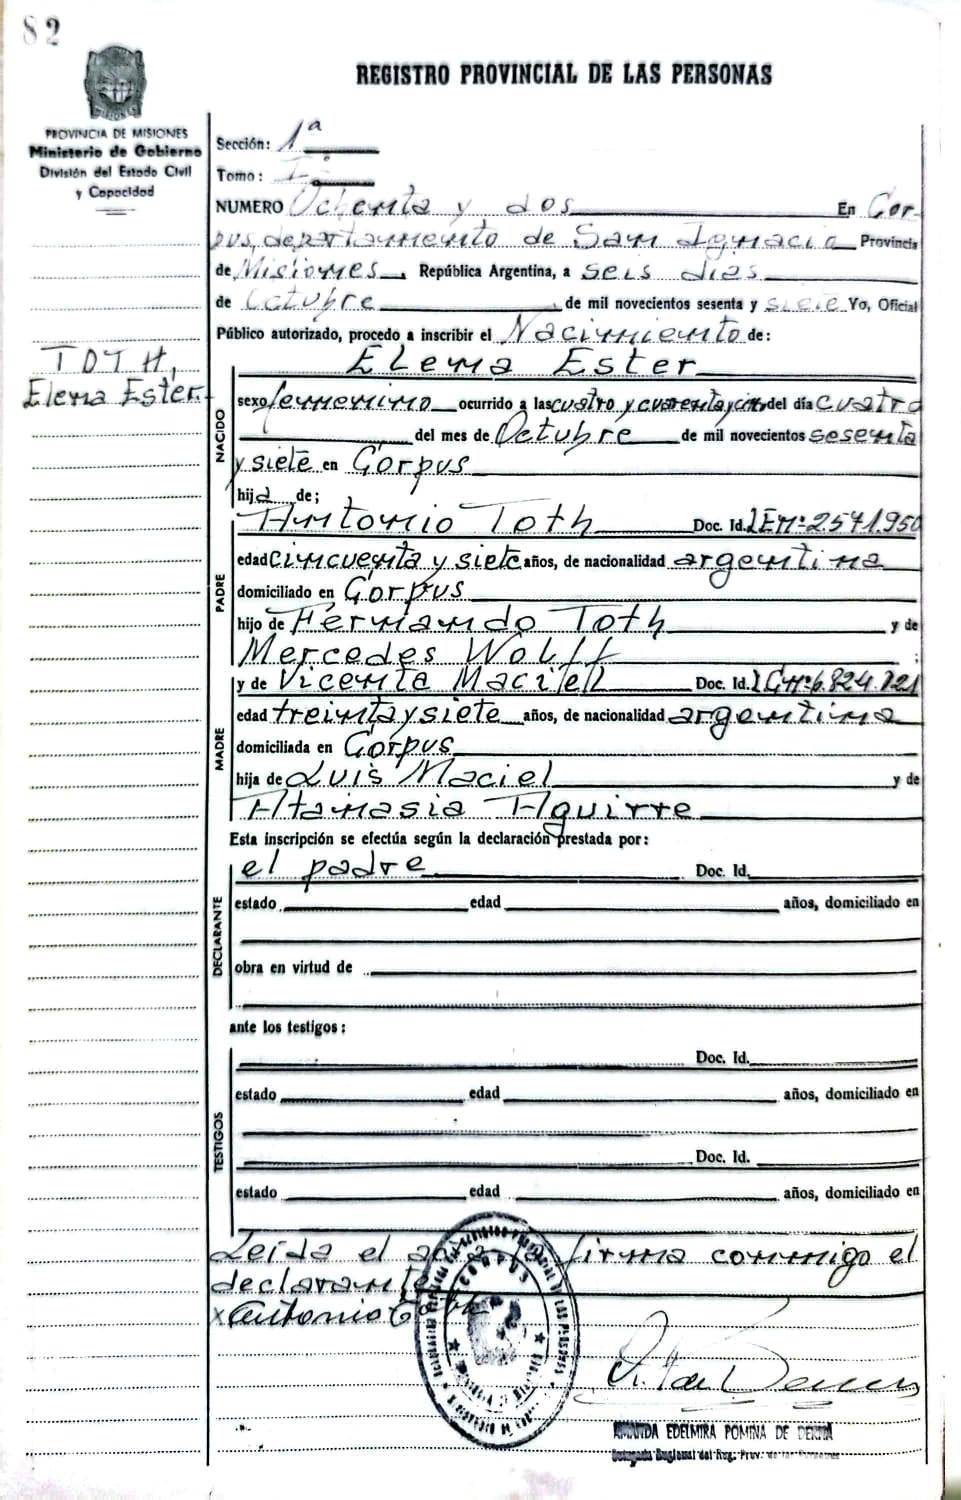 82
REGISTRO PROVINCIAL DE LAS PERSONAS
PROVINCIA DE MISIONES
Ministerio de Gobierno
División del Estado Civil
y Capacidad
Sección: 1ª
Tomo: I
NUMERO Ochenta y dos En Cor-
pus, departamento de San Ignacio Provincia
de Misiones, República Argentina, a seis días
de Octubre, de mil novecientos sesenta y siete Yo, Oficial
Público autorizado, procedo a inscribir el Nacimiento de:
TOTH,
Elena Ester
Elena Ester
NACIDO
sexo femenino ocurrido a las cuatro y cuarenta y del día cuatro
del mes de Octubre de mil novecientos sesenta
y siete en Corpus
hija de;
PADRE
Antonio Toth Doc. Id. LENº 2.571.950
edad cincuenta y siete años, de nacionalidad argentina
domiciliado en Corpus
hijo de Fernando Toth y de
Mercedes Wolff ;
MADRE
y de Vicenta Maciel Doc. Id. LCNº 6.824.121
edad treinta y siete años, de nacionalidad argentina
domiciliada en Corpus
hija de Luis Maciel y de
Atanasia Aguirre
Esta inscripción se efectúa según la declaración prestada por:
DECLARANTE
el padre Doc. Id.
estado edad años, domiciliado en
obra en virtud de
ante los testigos:
TESTIGOS
Doc. Id.
estado edad años, domiciliado en
Doc. Id.
estado edad años, domiciliado en
Leída el acta la firma conmigo el
declarante
x Antonio Toth
CORPUS
EDELMIRA POMINA DE
Delegada Regional del Reg. Prov. de las Personas